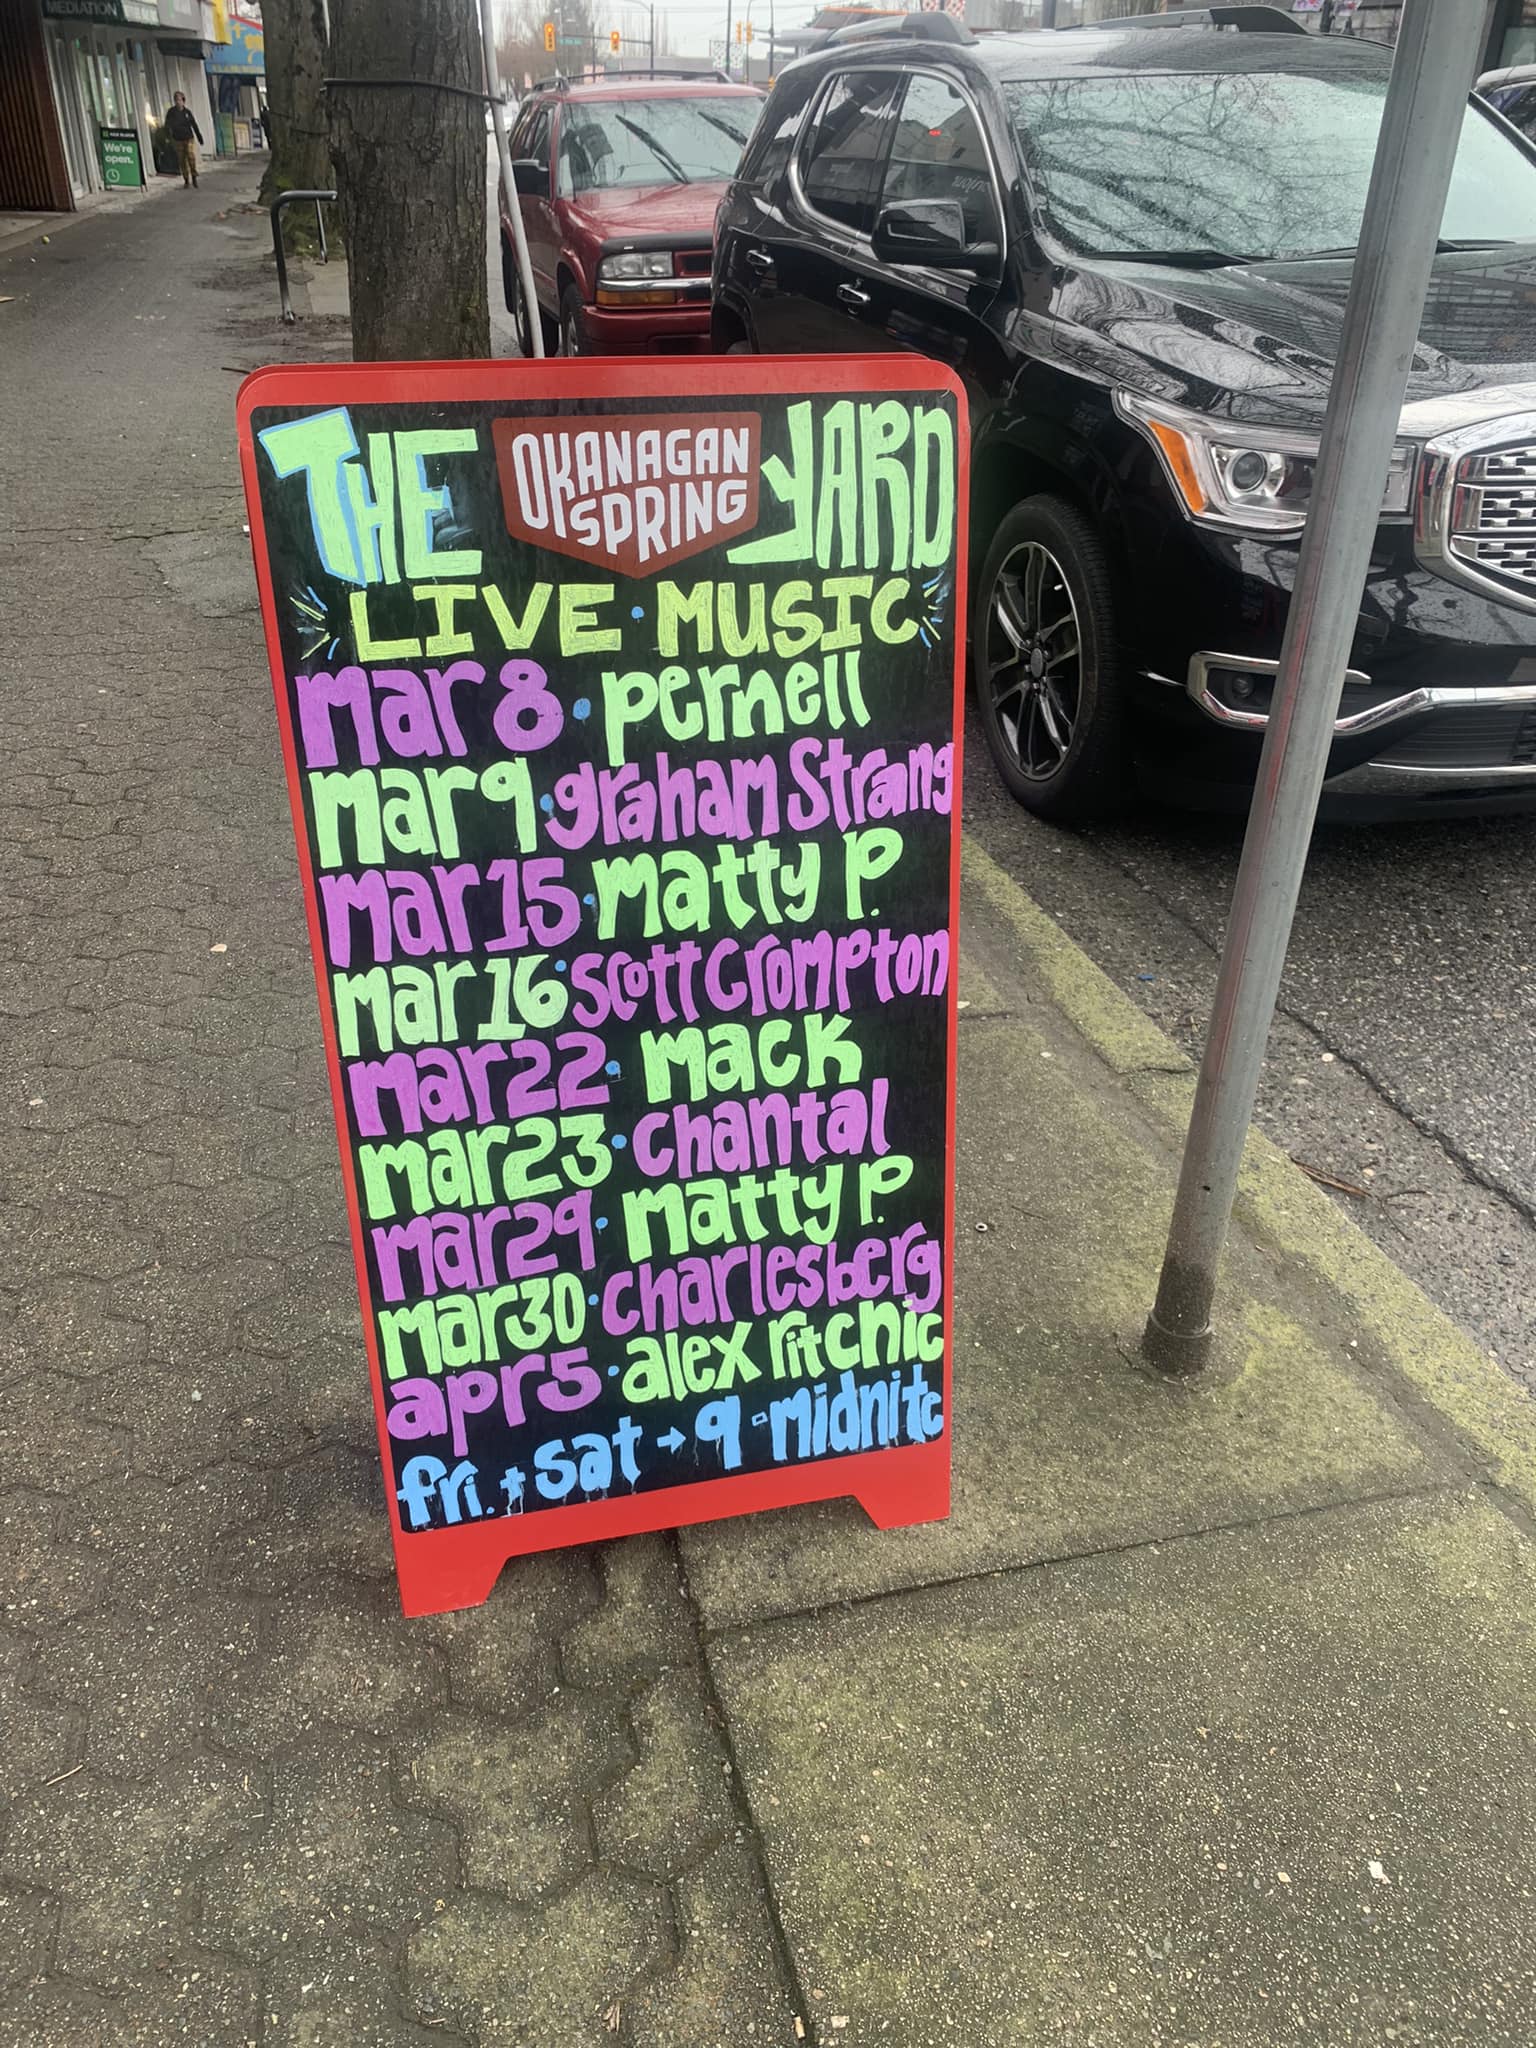 MEDIATION
We're
open.
THE OKANAGAN SPRING YARD
LIVE • MUSIC
mar 8 • pernell
mar 9 • graham Strang
mar 15 • matty p.
mar 16 • scott crompton
mar 22 • mack
mar 23 • chantal
mar 29 • matty p.
mar 30 • charlesberg
apr 5 • alex ritchie
fri. + sat → 9 - midnite